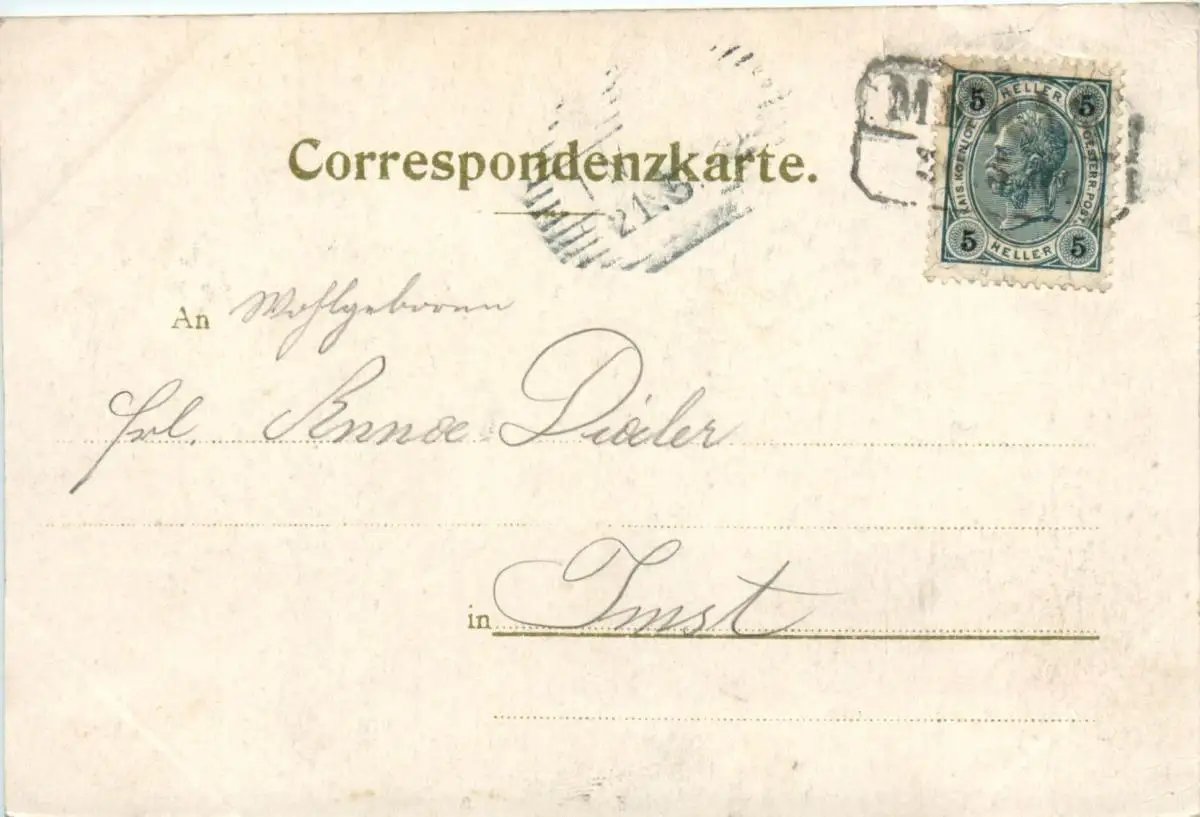 Correspondenzkarte.
21.5
M
5 HELLER 5
KAIS. KOENIGL. OESTERR. POST.
5 HELLER 5
An Wohlgeboren
Frl. Anna
in Imst